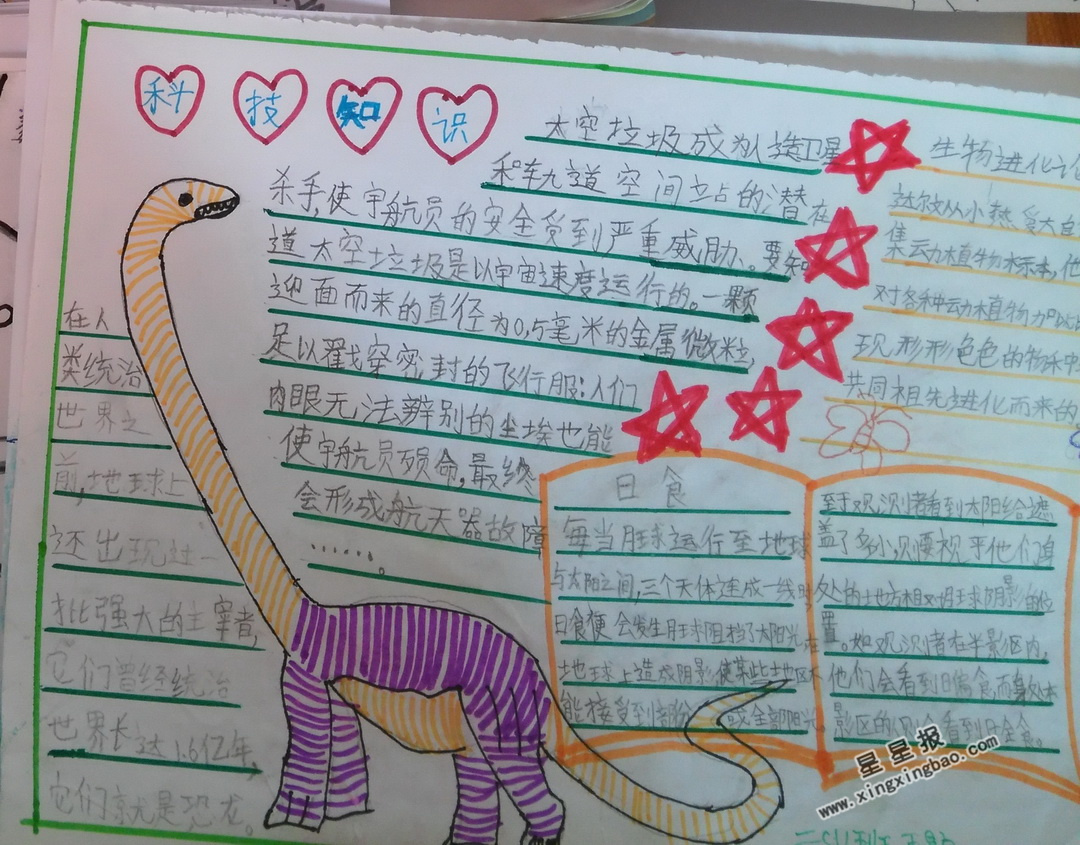 科技知识
太空垃圾成为人造卫星
和轨道空间站的潜在
杀手,使宇航员的安全受到严重威胁。要知
道太空垃圾是以宇宙速度运行的。一颗
迎面而来的直径为0.5毫米的金属微粒,
足以戳穿密封的飞行服;人们
肉眼无法辨别的尘埃也能
使宇航员殒命,最终
会形成航天器故障
……。
在人
类统治
世界之
前,地球上
还出现过一
批强大的主宰者,
它们曾经统治
世界长达1.6亿年,
它们就是恐龙。
生物进化论
达尔文从小热爱大自
集动植物标本,他
对各种动植物加以
现形形色色的物种
共同祖先进化而来的
日食
每当月球运行至地球
与太阳之间,三个天体连成一线时
日食便会发生月球阻挡了太阳光在
地球上造成阴影使某些地区不
能接受到部份或全部阳光。
至于观测者看到太阳给遮
盖了多少,则要视乎他们身
处的地方相对月球阴影的位
置。如观测者在半影区内,
他们会看到日偏食而身处本
影区的则会看到日全食。
星星报
www.xingxingbao.com